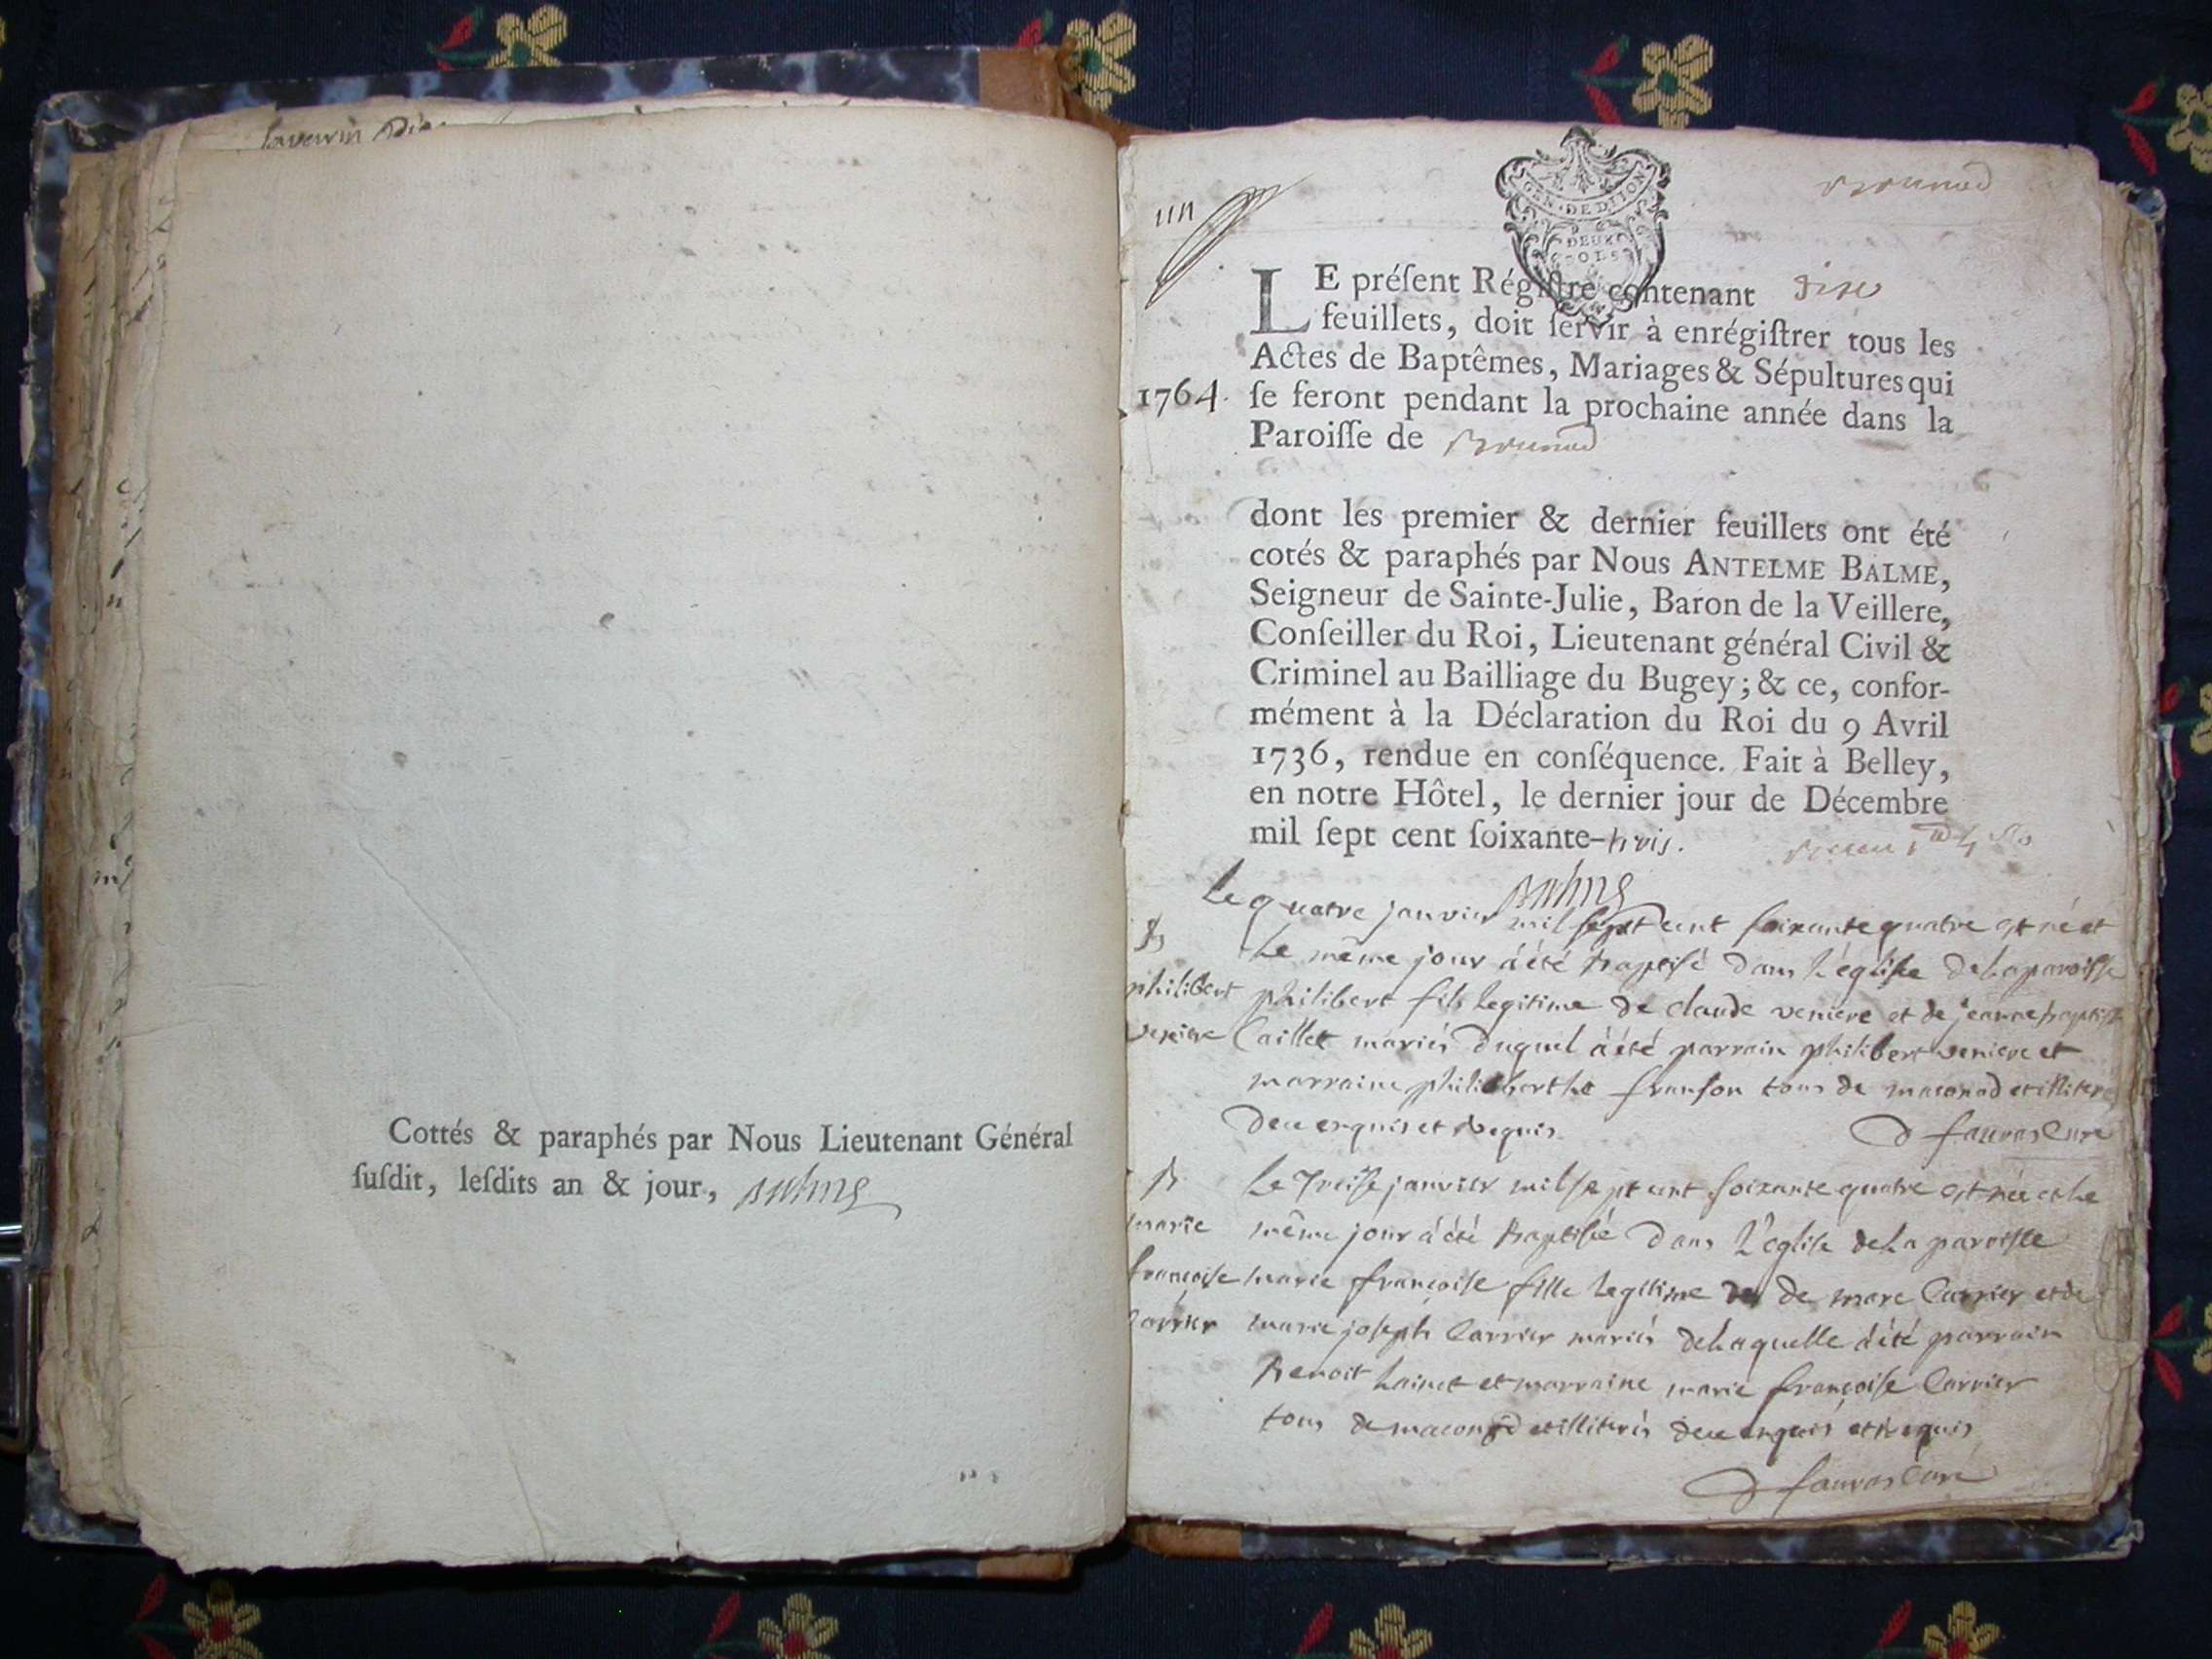 Cottés & paraphés par Nous Lieutenant Général
ſuſdit, leſdits an & jour,
un
GEN. DE DIJON
DEUX
SOLS
LE préſent Régiſtre contenant
feuillets, doit ſervir à enrégiſtrer tous les
Actes de Baptêmes, Mariages & Sépultures qui
1764. ſe feront pendant la prochaine année dans la
Paroiſſe de
dont les premier & dernier feuillets ont été
cotés & paraphés par Nous ANTELME BALME,
Seigneur de Sainte-Julie, Baron de la Veillere,
Conſeiller du Roi, Lieutenant général Civil &
Criminel au Bailliage du Bugey; & ce, confor-
mément à la Déclaration du Roi du 9 Avril
1736, rendue en conſéquence. Fait à Belley,
en notre Hôtel, le dernier jour de Décembre
mil ſept cent ſoixante-trois.
Le quatre janvier mil sept cent soixante quatre est né et
Le même jour à été Baptisé dans L'église de La paroisse
philibert
philibert fils legitime de claude veniere et de jeanne baptiste
veniere
Caillet mariés duquel à été parrain philibert veniere et
marraine philiberthe franson tous de maconod et illiteres
de ce enquis et requis
D fauvas Curé
B
Le treise janvier mil sept cent soixante quatre est née et Le
marie
même jour à été Baptisée dans L'église de La paroisse
françoise
marie françoise fille legitime de marc Carrier et de
Carrier
marie joseph Carrier mariés de Laquelle à été parrain
Benoit Lainet et marraine marie françoise Carrier
tous de maconod et illiterés de ce enquis et requis
D fauvas Curé